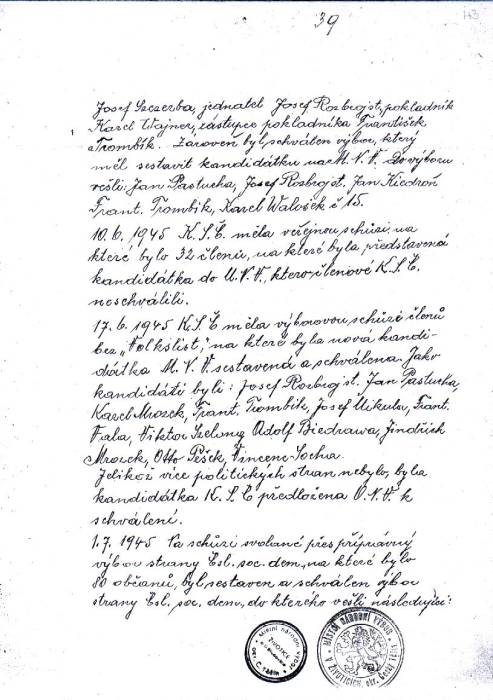 39
Josef Szczerba, jednatel Josef Rozbrojst, pokladník
Karel Wajner, zástupce pokladníka František
Trombik. Zároveň byl schválen výbor, který
měl sestavit kandidátku na M.N.V. Do výboru
vešli: Jan Pastucha, Josef Rozbrojst. Jan Kiedroň
Frant. Trombik, Karel Walošek č 15.
10.6. 1945 K.S.Č. měla veřejnou schůzi, na
které bylo 32 členů, na které byla představená
kandidátka do M.N.V., kterou členové K.S.Č.
neschválili.
17.6. 1945 K.S.Č měla výborovou schůzi členů
bez „Volkslist“, na které byla nová kandi-
dátka M.N.V. sestavená a schválena. Jako
kandidáti byli: Josef Rozbrojst. Jan Pastucha,
Karel Mrozek, Frant. Trombik, Josef Mikula, Frant.
Viktor Adolf Biedrawa, Jindřich
Mrozek, Otto Pešek, Vincenc Socha.
Jelikož více politických stran nebylo, byla
kandidátka K.S.Č předložena O.N.V. k
schválení.
1.7. 1945 Na schůzi svolané přes přípravný
výbor strany Čsl. soc. dem., na které bylo
80 občanů, byl sestaven a schválen výbor
strany Čsl. soc. dem., do kterého vešli následující:
MÍSTNÍ NÁRODNÍ VÝBOR
V ŽIVOTICÍCH, okr. Český